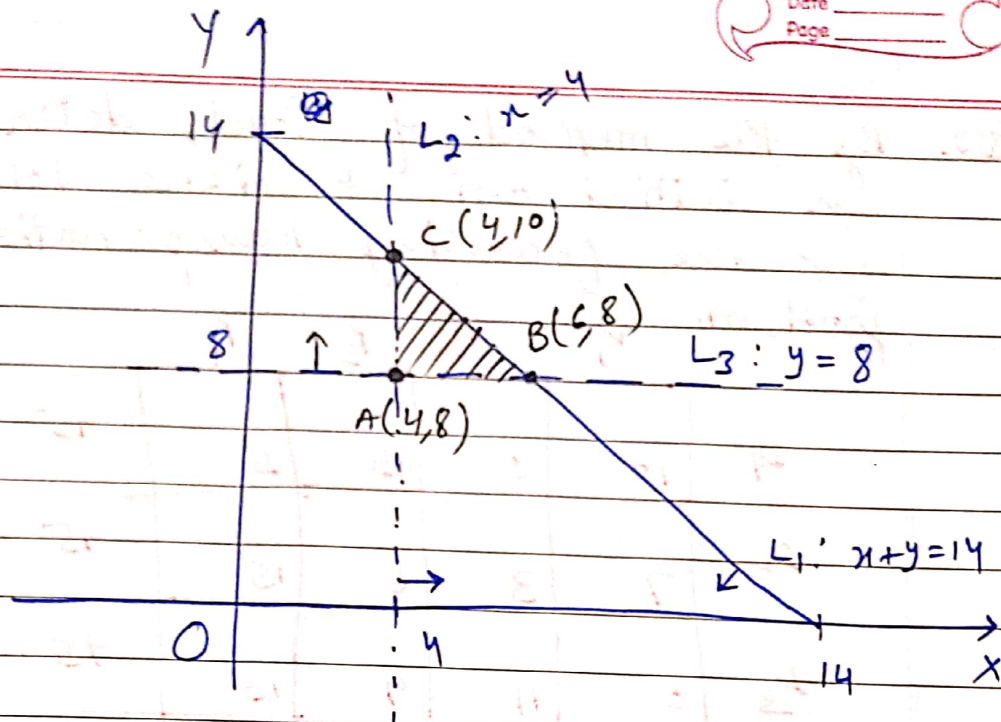 Date
Page
Y
14
L2: x = 4
C(4,10)
8
↑
B(6,8)
L3: y = 8
A(4,8)
L1: x+y=14
→
O
4
14
X